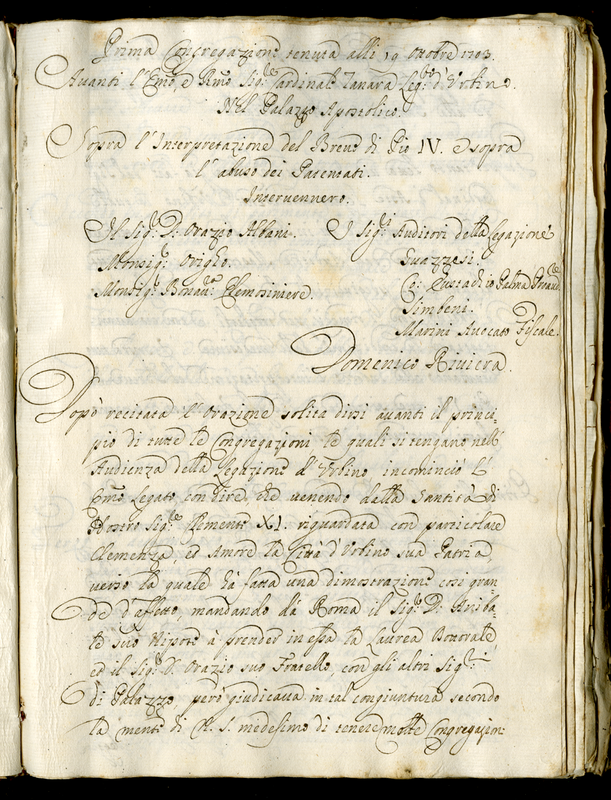 Prima Congregazione tenuta alli 19 Ottobre 1703.
Avanti l'Emo, e Rmo Sig.r Cardinale Tanara Leg.to d'Urbino.
Nel Palazzo Apostolico.
Sopra l'Interpretazione del Breve di Pio IV. e sopra
l'abuso dei Patentati.
Intervennero.
Il Sig.r D. Orazio Albani. I Sig.ri Auditori della Legazione
Monsig.r Origho. Guazzesi.
Monsig.r Bonav.a Elemosiniere Co:
Simbeni.
Marini Avocato Fiscale.
Domenico Riviera.
Dopò recitata l'Orazione solita dirsi avanti il princi-
pio di tutte le Congregazioni le quali si tengano nell'
Audienza della Legazione d'Urbino incominciò l'
Emo Legato con dire, che venendo dalla Santità di
Nostro Sig.re Clemente XI. riguardata con particolare
Clemenza, ed Amore la Città d'Urbino sua Patria,
verso la quale hà fatta una dimostrazione così gran-
de d'affetto, mandando dà Roma il Sig.r D. Aniba-
le suo Nipote à prender in essa la Laurea Dottorale,
ed il Sig.r D. Orazio suo Fratello, con gli altri Sig.ri
di Palazzo, però giudicava in tal congiuntura secondo
la mente di N. S. medesimo di tenere molte Congregazioni